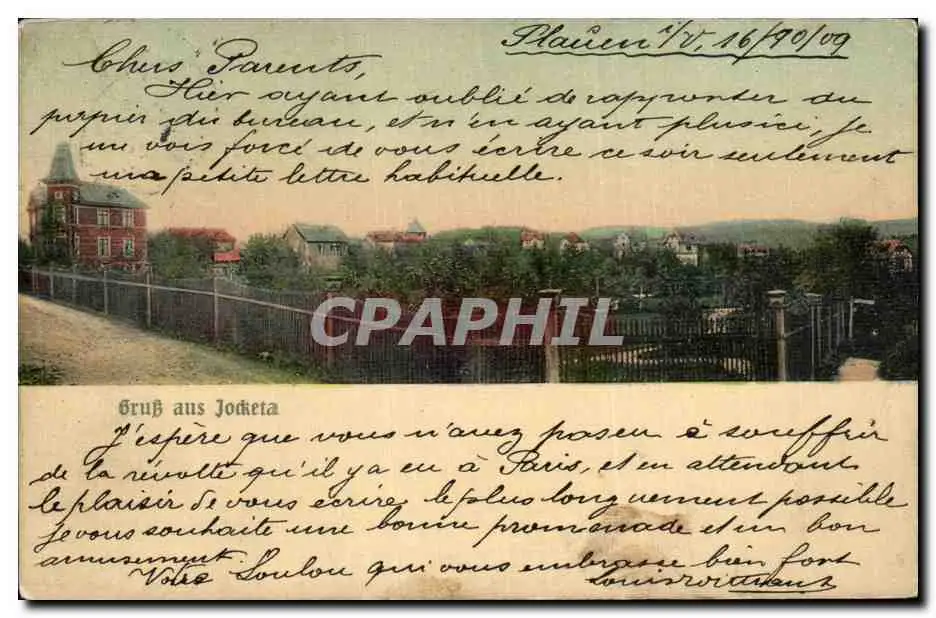 Plauen i/V, 16/10/09
Chers Parents,
Hier ayant oublié de rapporter du
papier du bureau, et n'en ayant plus ici, je
me vois forcé de vous écrire ce soir seulement
ma petite lettre habituelle.
CPAPHIL
Gruß aus Jocketa
J'espère que vous n'avez pas eu à souffrir
de la révolte qu'il y a eu à Paris, et en attendant
le plaisir de vous écrire le plus longuement possible
je vous souhaite une bonne promenade et un bon
amusement.
Votre Loulou qui vous embrasse bien fort